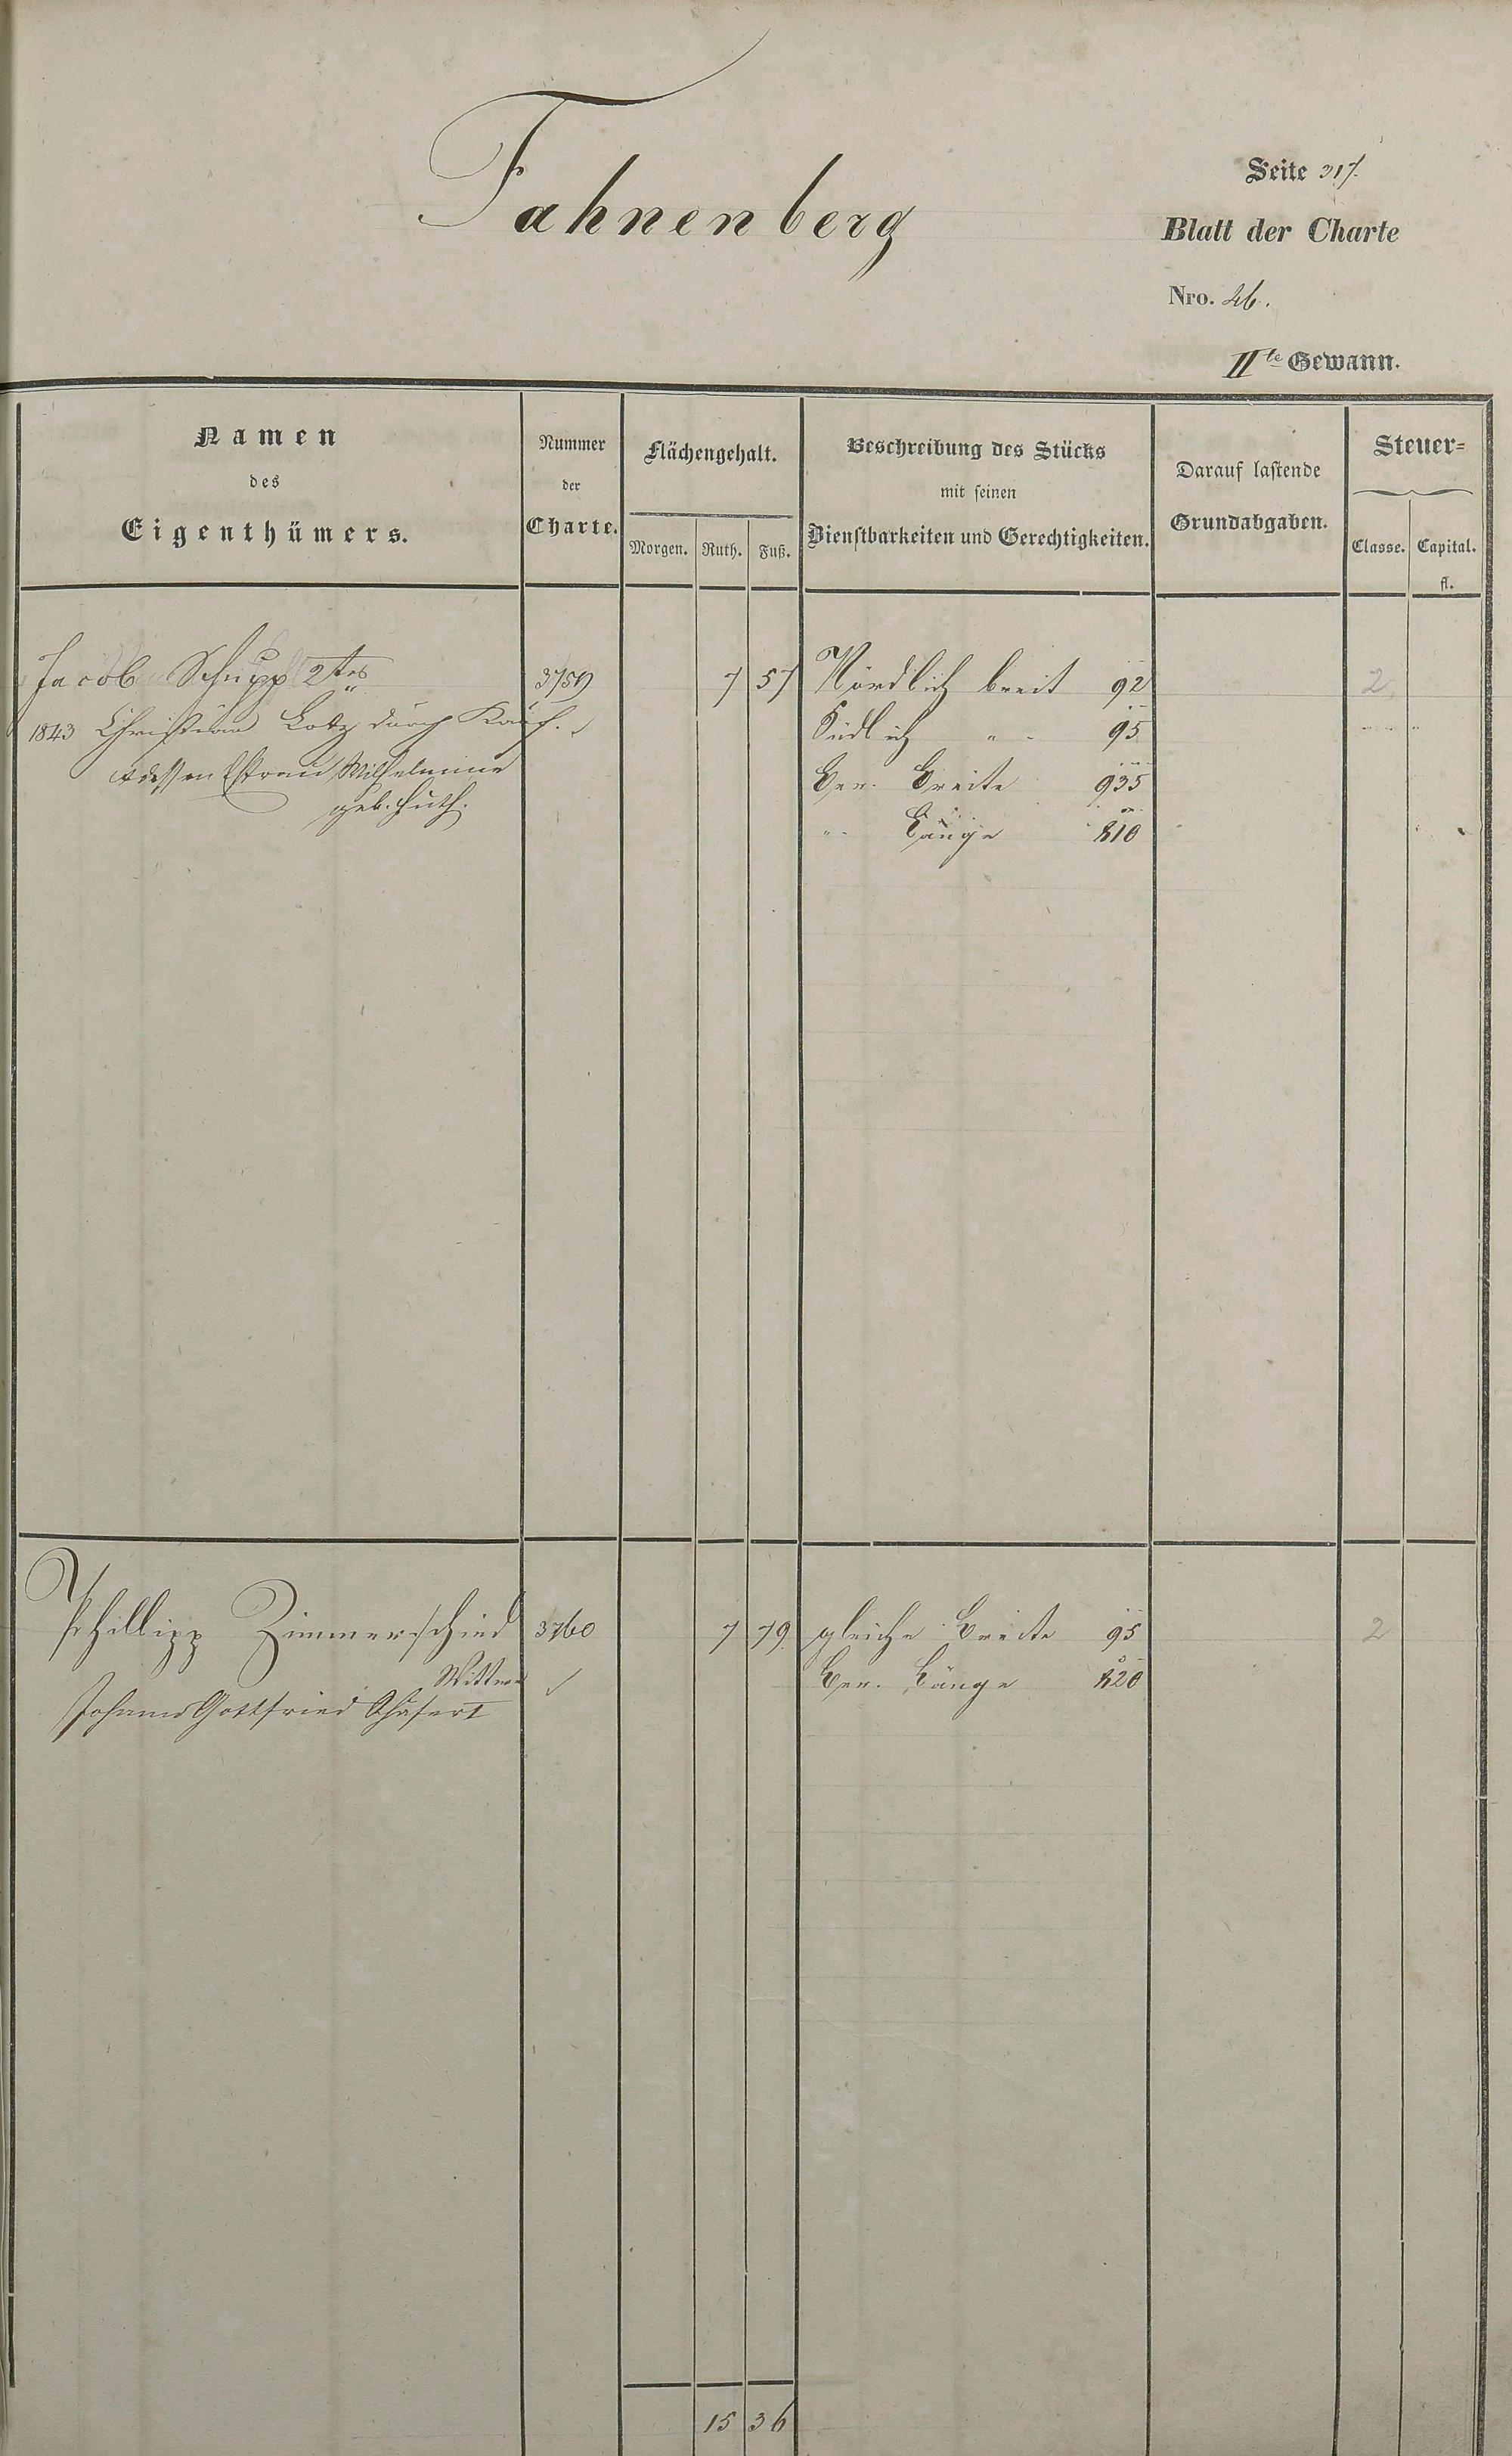 Fahnenberg
Seite 317.
Blatt der Charte
Nro. 26.
IIte Gewann.
Namen
des
Eigenthümers.
Nummer
der
Charte.
Flächengehalt.
Morgen. Ruth. Fuß.
Beschreibung des Stücks
mit seinen
Dienstbarkeiten und Gerechtigkeiten.
Darauf lastende
Grundabgaben.
Steuer-
Classe. Capital.
fl.
Jacob Schupp 2tes 3759 7 57 Nördlich breit 92 2
1843 Christian Lotz durch Kauf. Südlich " 95
dessen Ehefrau Wilhelmine Ber. Breite 935
geb. Huth. " Länge 810
Phillipp Zimmerschied 3760 7 79 gleiche Breite 95 2
Wittwe Ber. Länge 820
Johann Gottfried Schäfer I
15 36